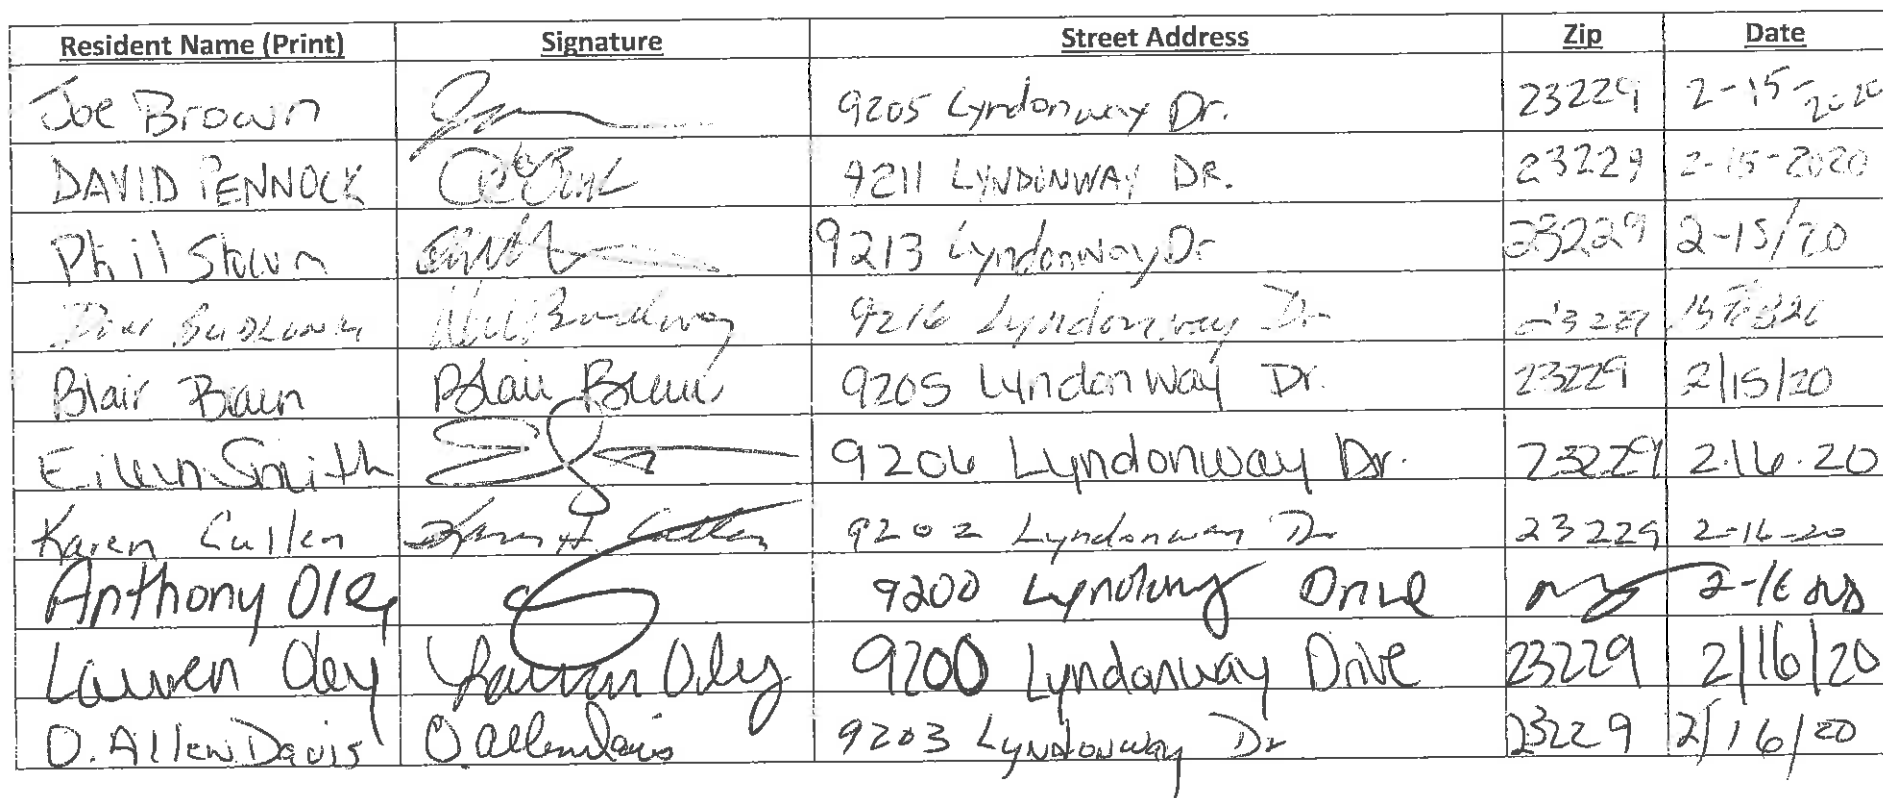 Resident Name (Print) Signature Street Address Zip Date
Joe Brown 9205 Lyndonway Dr. 23229 2-15-2020
DAVID PENNOCK 9211 LYNDONWAY DR. 23229 2-15-2020
Phil 9213 Lyndonway Dr 23229 2-15/20
9216 Lyndonway Dr 23229
Blair Blair 9205 Lyndonway Dr. 23229 2/15/20
Eileen Smith 9206 Lyndonway Dr. 23229 2.16.20
Karen Cullen Karen H. Cullen 9202 Lyndonway Dr 23229 2-16-20
Anthony Oley 9200 Drive
Lauren Oley Lauren Oley 9200 Lyndonway Drive 23229 2/16/20
O. Allen Davis O. Allen Davis 9203 Lyndonway Dr 23229 2/16/20